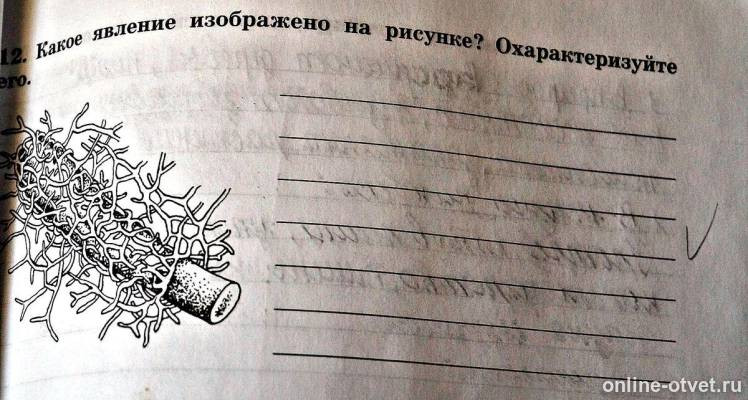 12. Какое явление изображено на рисунке? Охарактеризуйте
его.
online-otvet.ru